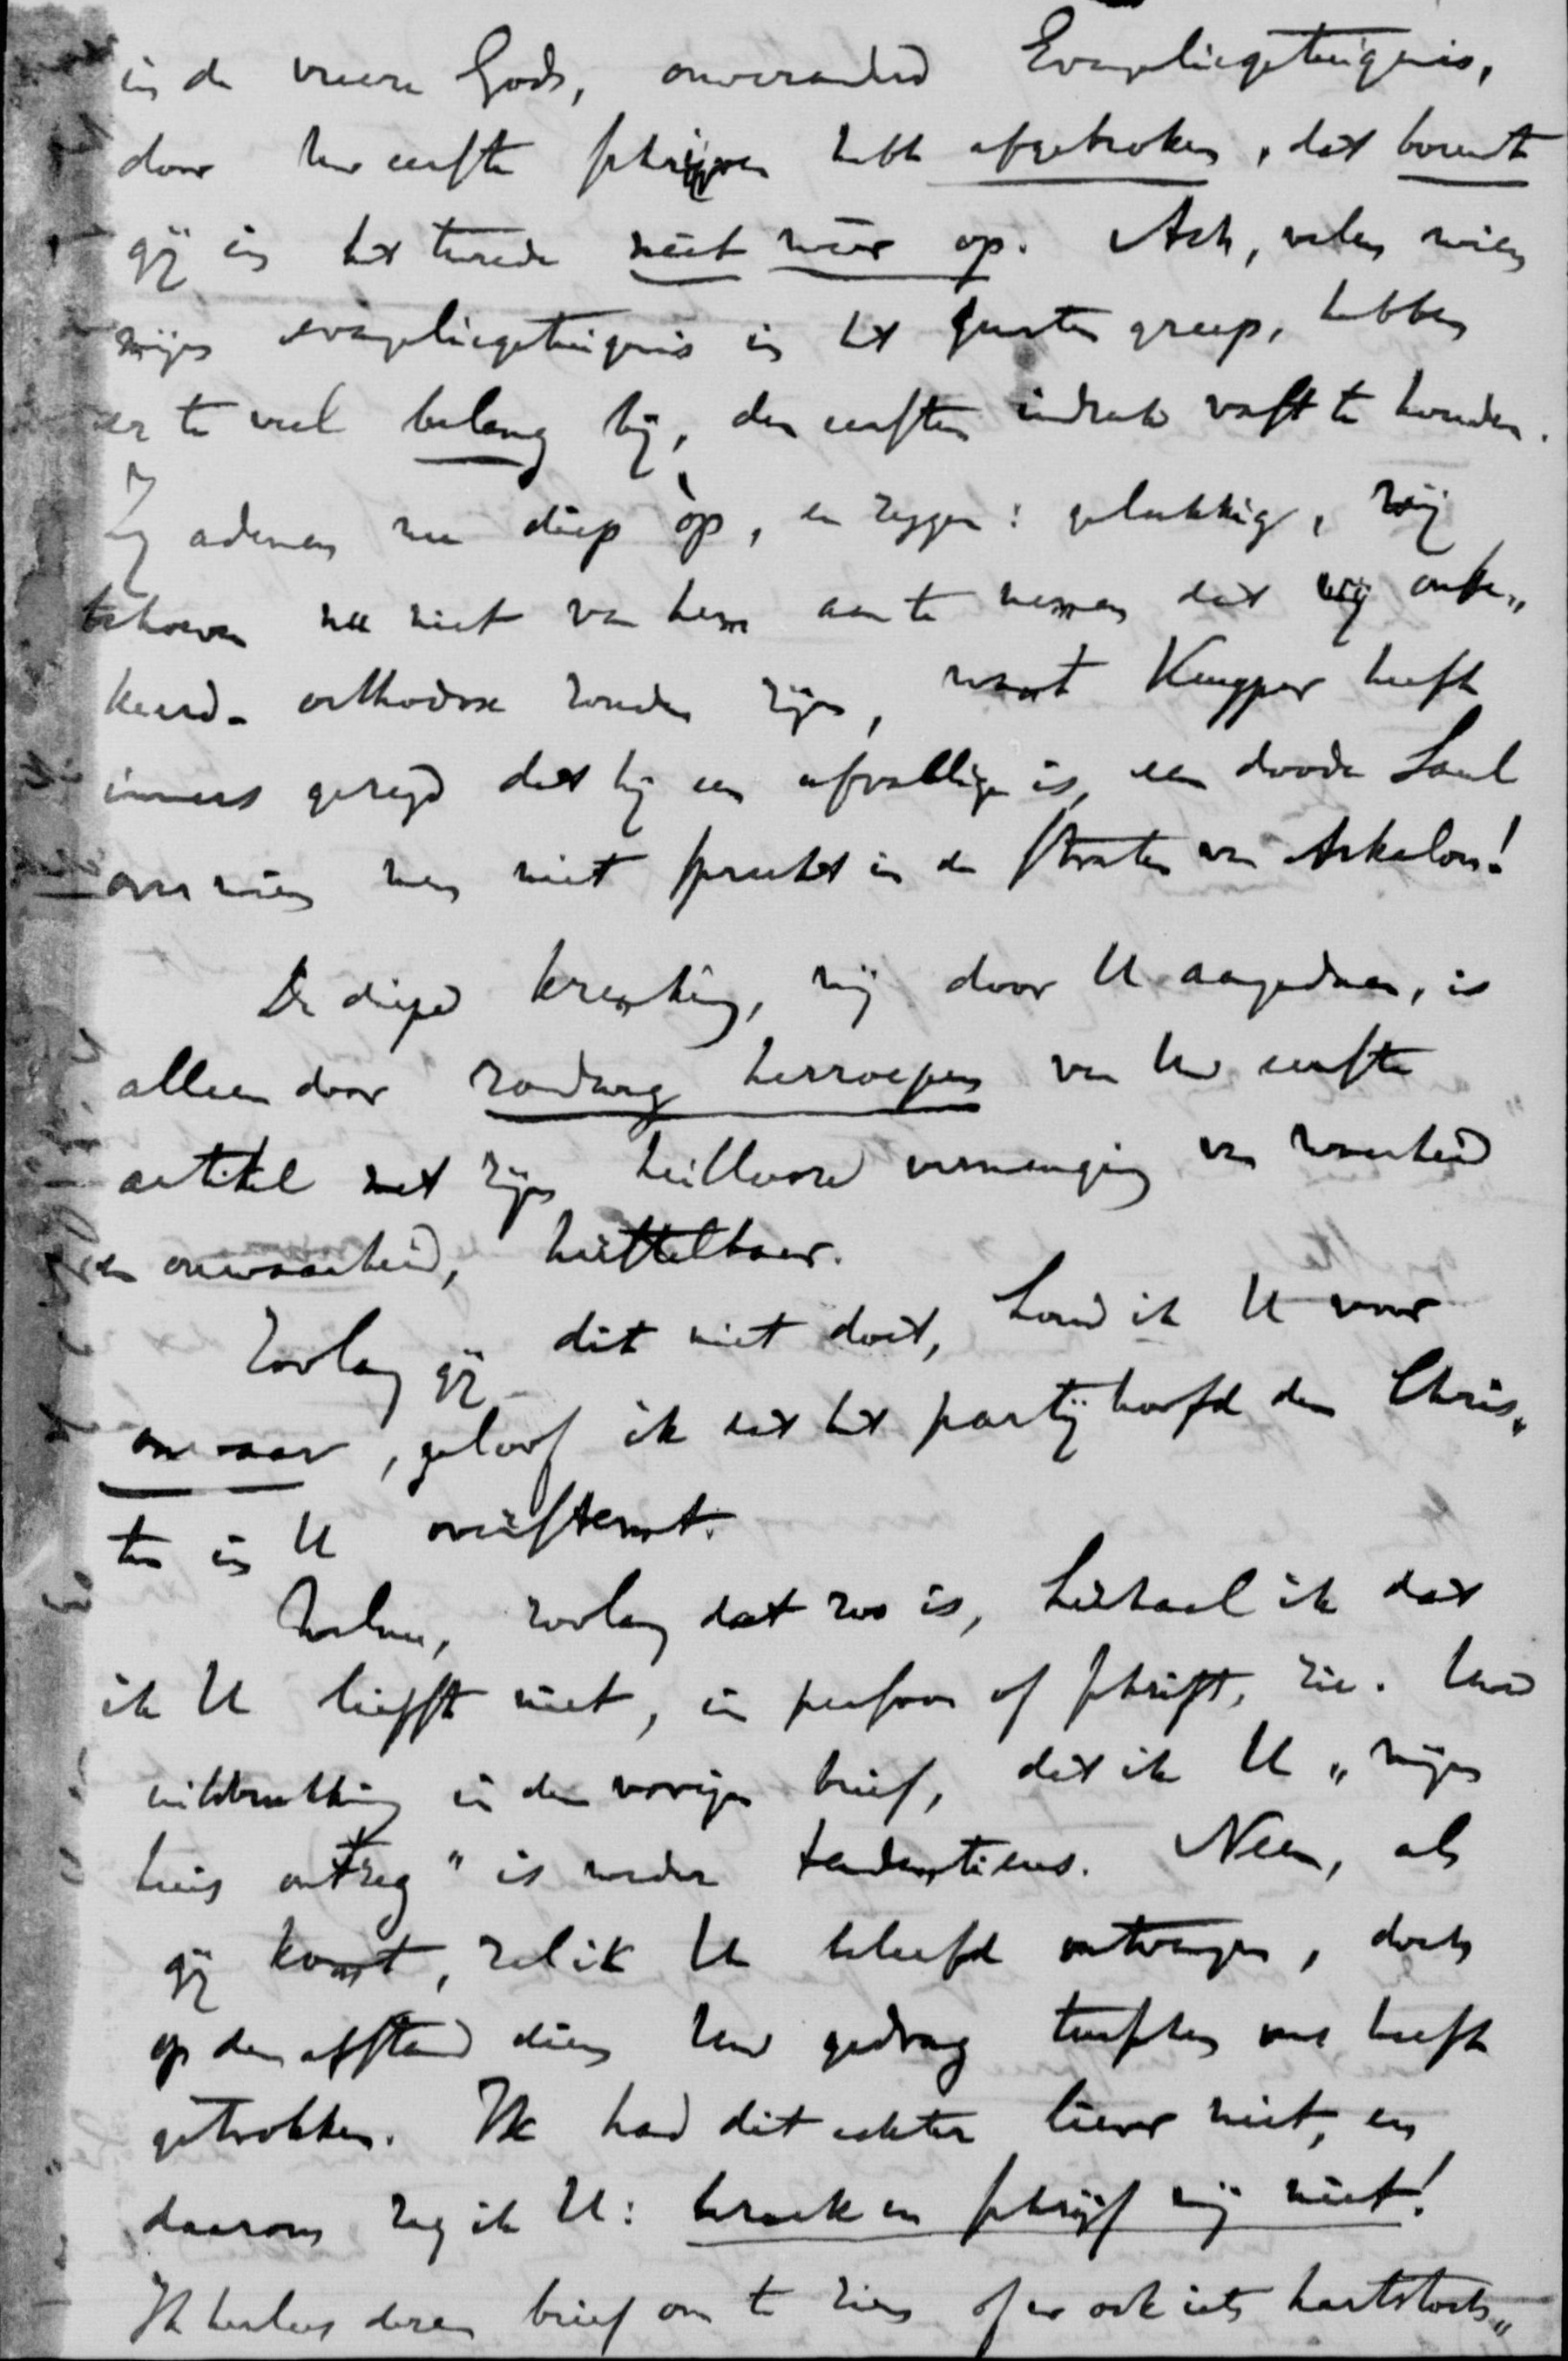 in de vreeze Gods, onveranderd Evangeliegetuigenis,
door Uw eerste schrijven hebt afgebroken, dat bouwdt
gij in het tweede niet weer op. Ach, velen wien
mijn evangeliegetuigenis in het geweten greep, hebben
er te veel belang bij, den eersten indruk vast te houden.
Zij ademen nu diep òp, en zeggen: gelukkig, wij
behoeven nu niet van hem aan te nemen dat wij onbe„
keerd-orthodoxe zouden zijn, want Kuyper heeft
immers gezegd dat hij een afvallige is, een doode Saul
over wien men niet spreekt in de straten van Askelon!
De diepe krenking, mij door U aangedaan, is
alleen door rondweg herroepen van Uw eerste
artikel met zijn heillooze vermenging van waarheid
en onwaarheid, herstelbaar.
Zoolang gij dit niet doet, houd ik U voor
onwaar, geloof ik dat het partijhoofd den Chris„
ten in U overstemt.
Welnu, zoolang dat zoo is, herhaal ik dat
ik U liefst niet, in persoon of schrift, zie. Uwe
uitdrukking in den vorigen brief, dat ik U „mijn
huis ontzeg" is weder tendentieus. Neen, als
gij komt, zal ik U beleefd ontvangen, doch
op den afstand dien Uw gedrag tusschen ons heeft
getrokken. Ik had dit echter liever niet, en
daarom zeg ik U: bezoek en schrijf mij niet!
Ik herlees dezen brief om te zien of er ook iets hartstoch„